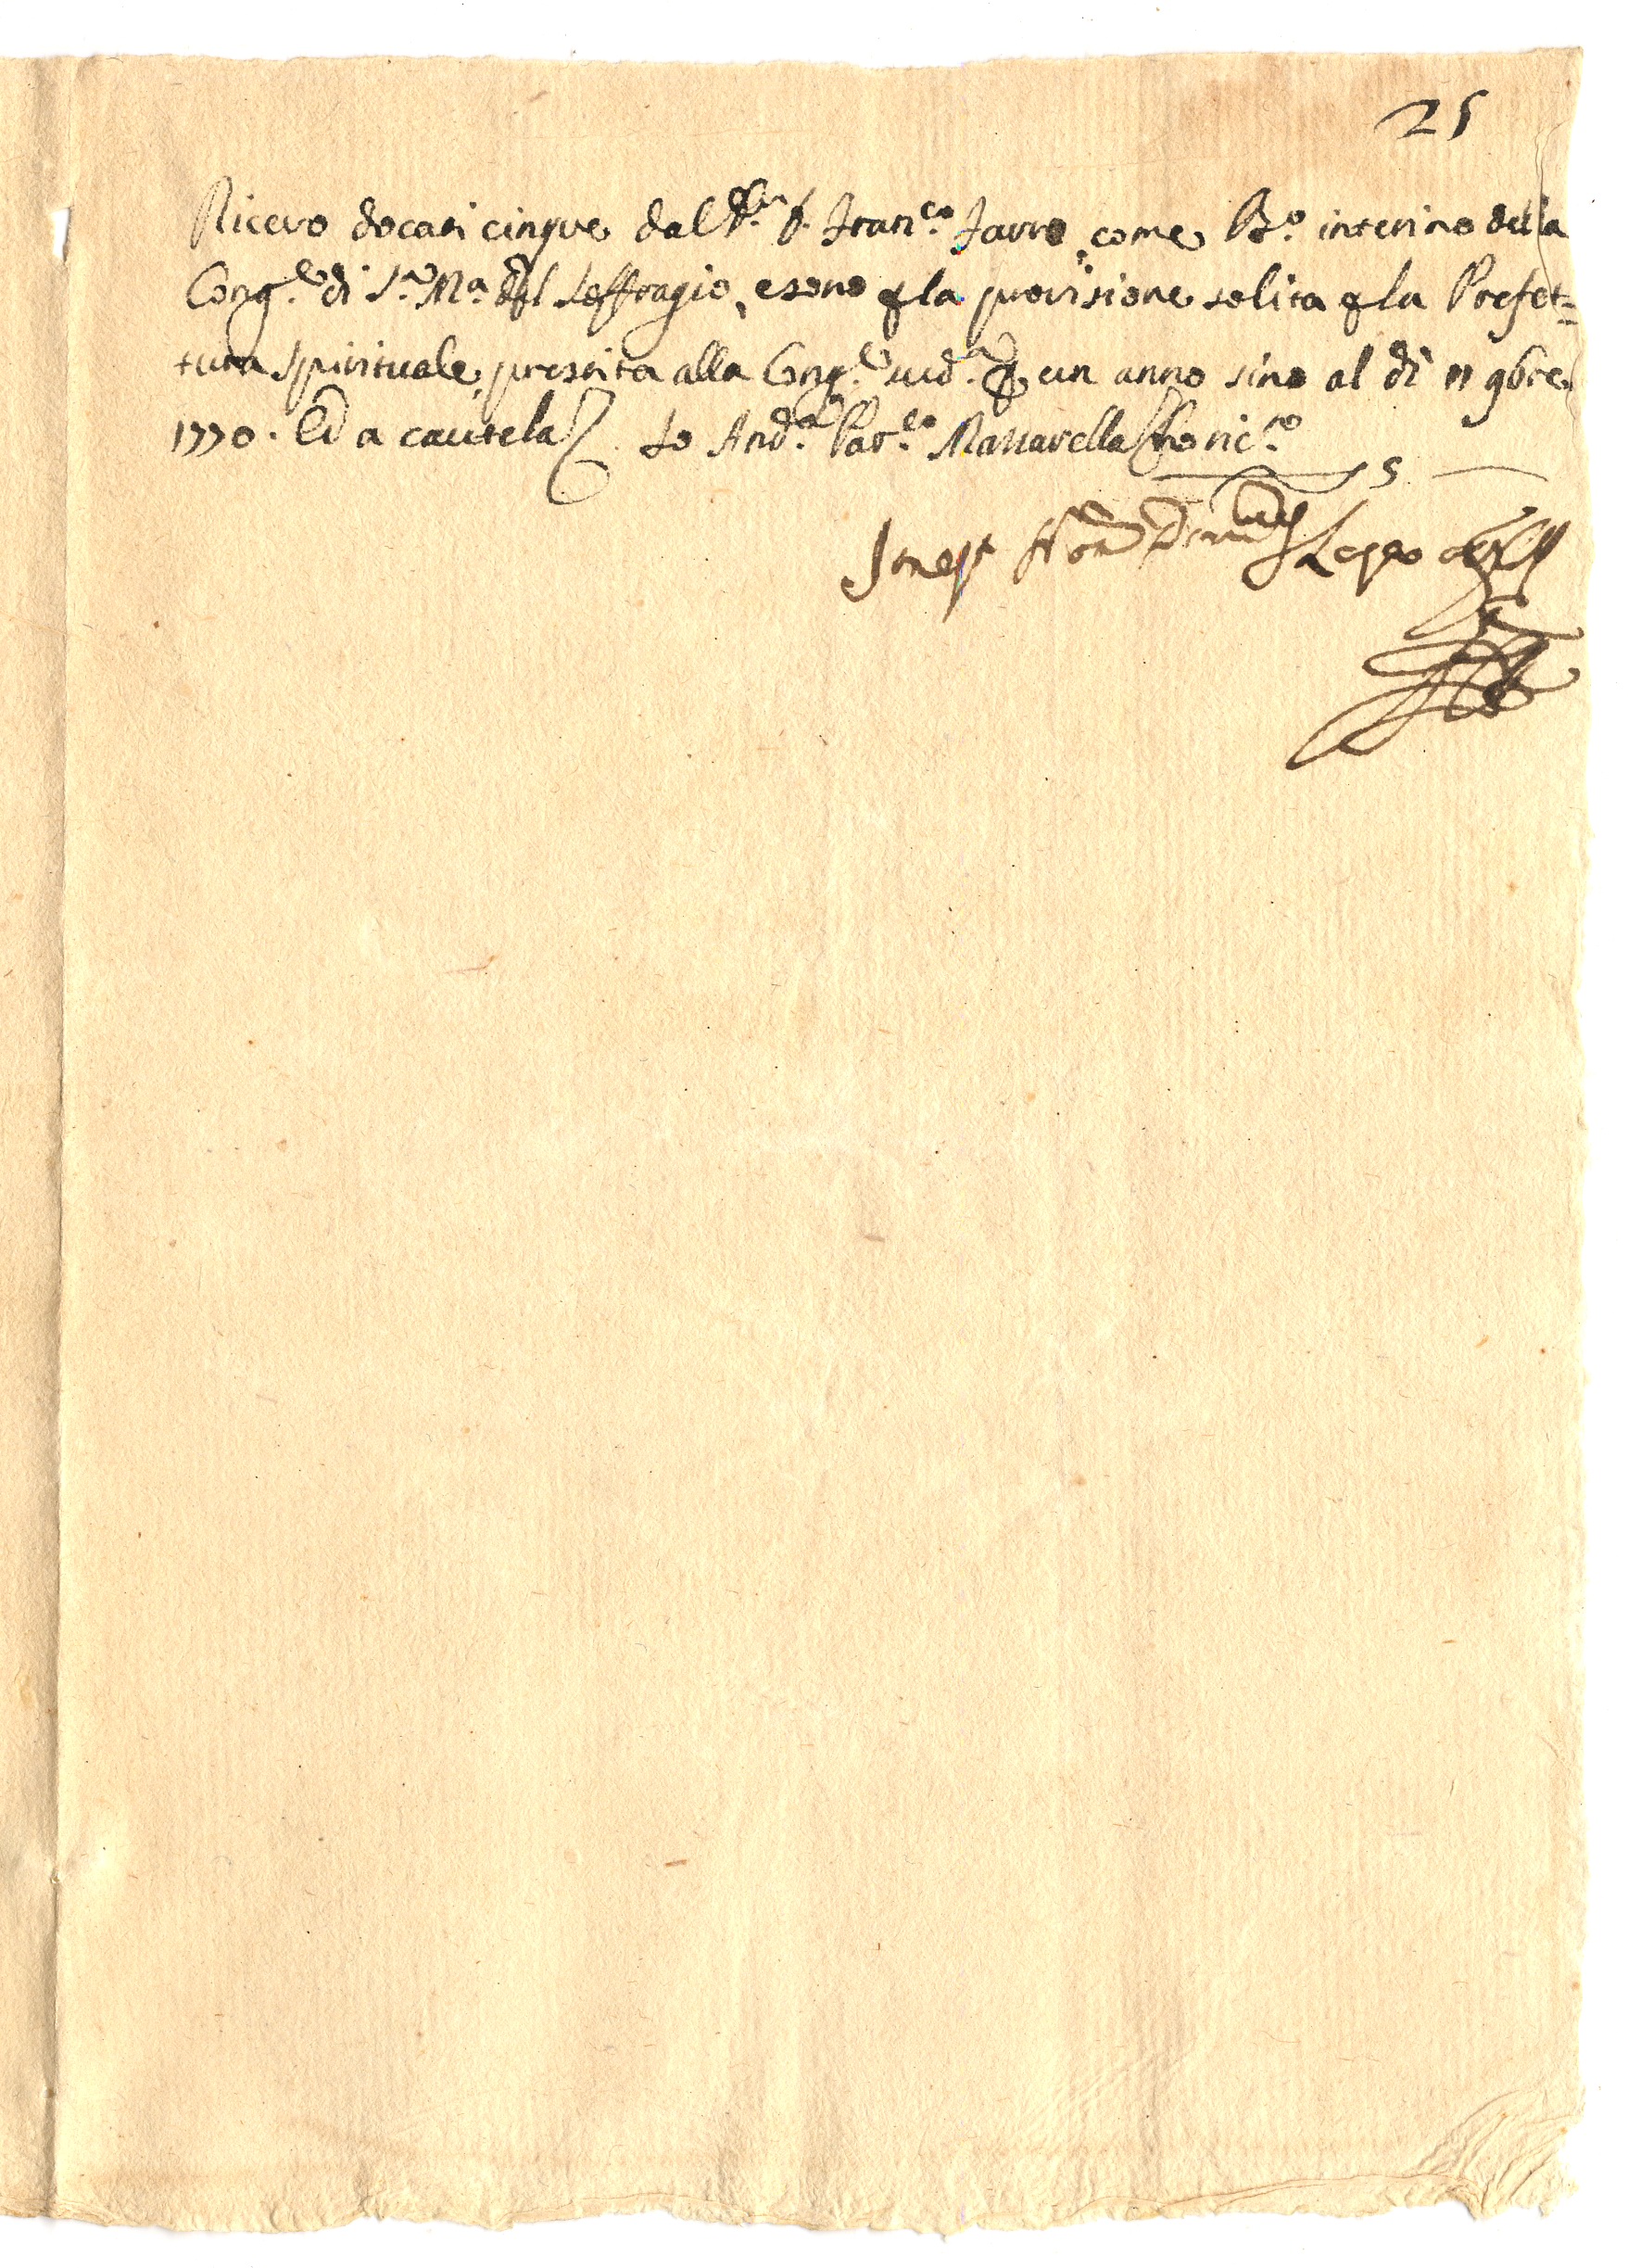 25
Ricevo docati cinque dal D.r D. Fran.co Iavro, come Pr.o interino della
Cong.e di S.a M.a del Soffragio, e sono p la provisione solita p la Prefet=
tura Spirituale, prestita alla Cong.e sud.a p un anno sino al dì 11 9bre
1770. Ed a cautela Io And.a Par.co Mattarella ho ric.to
5